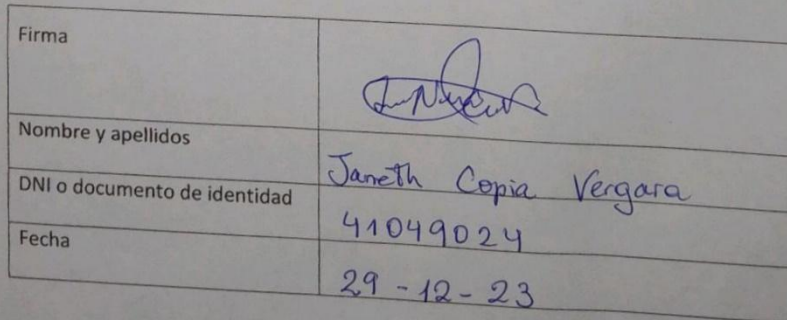 Firma
Nombre y apellidos
Janeth Copia Vergara
DNI o documento de identidad
41049024
Fecha
29-12-23